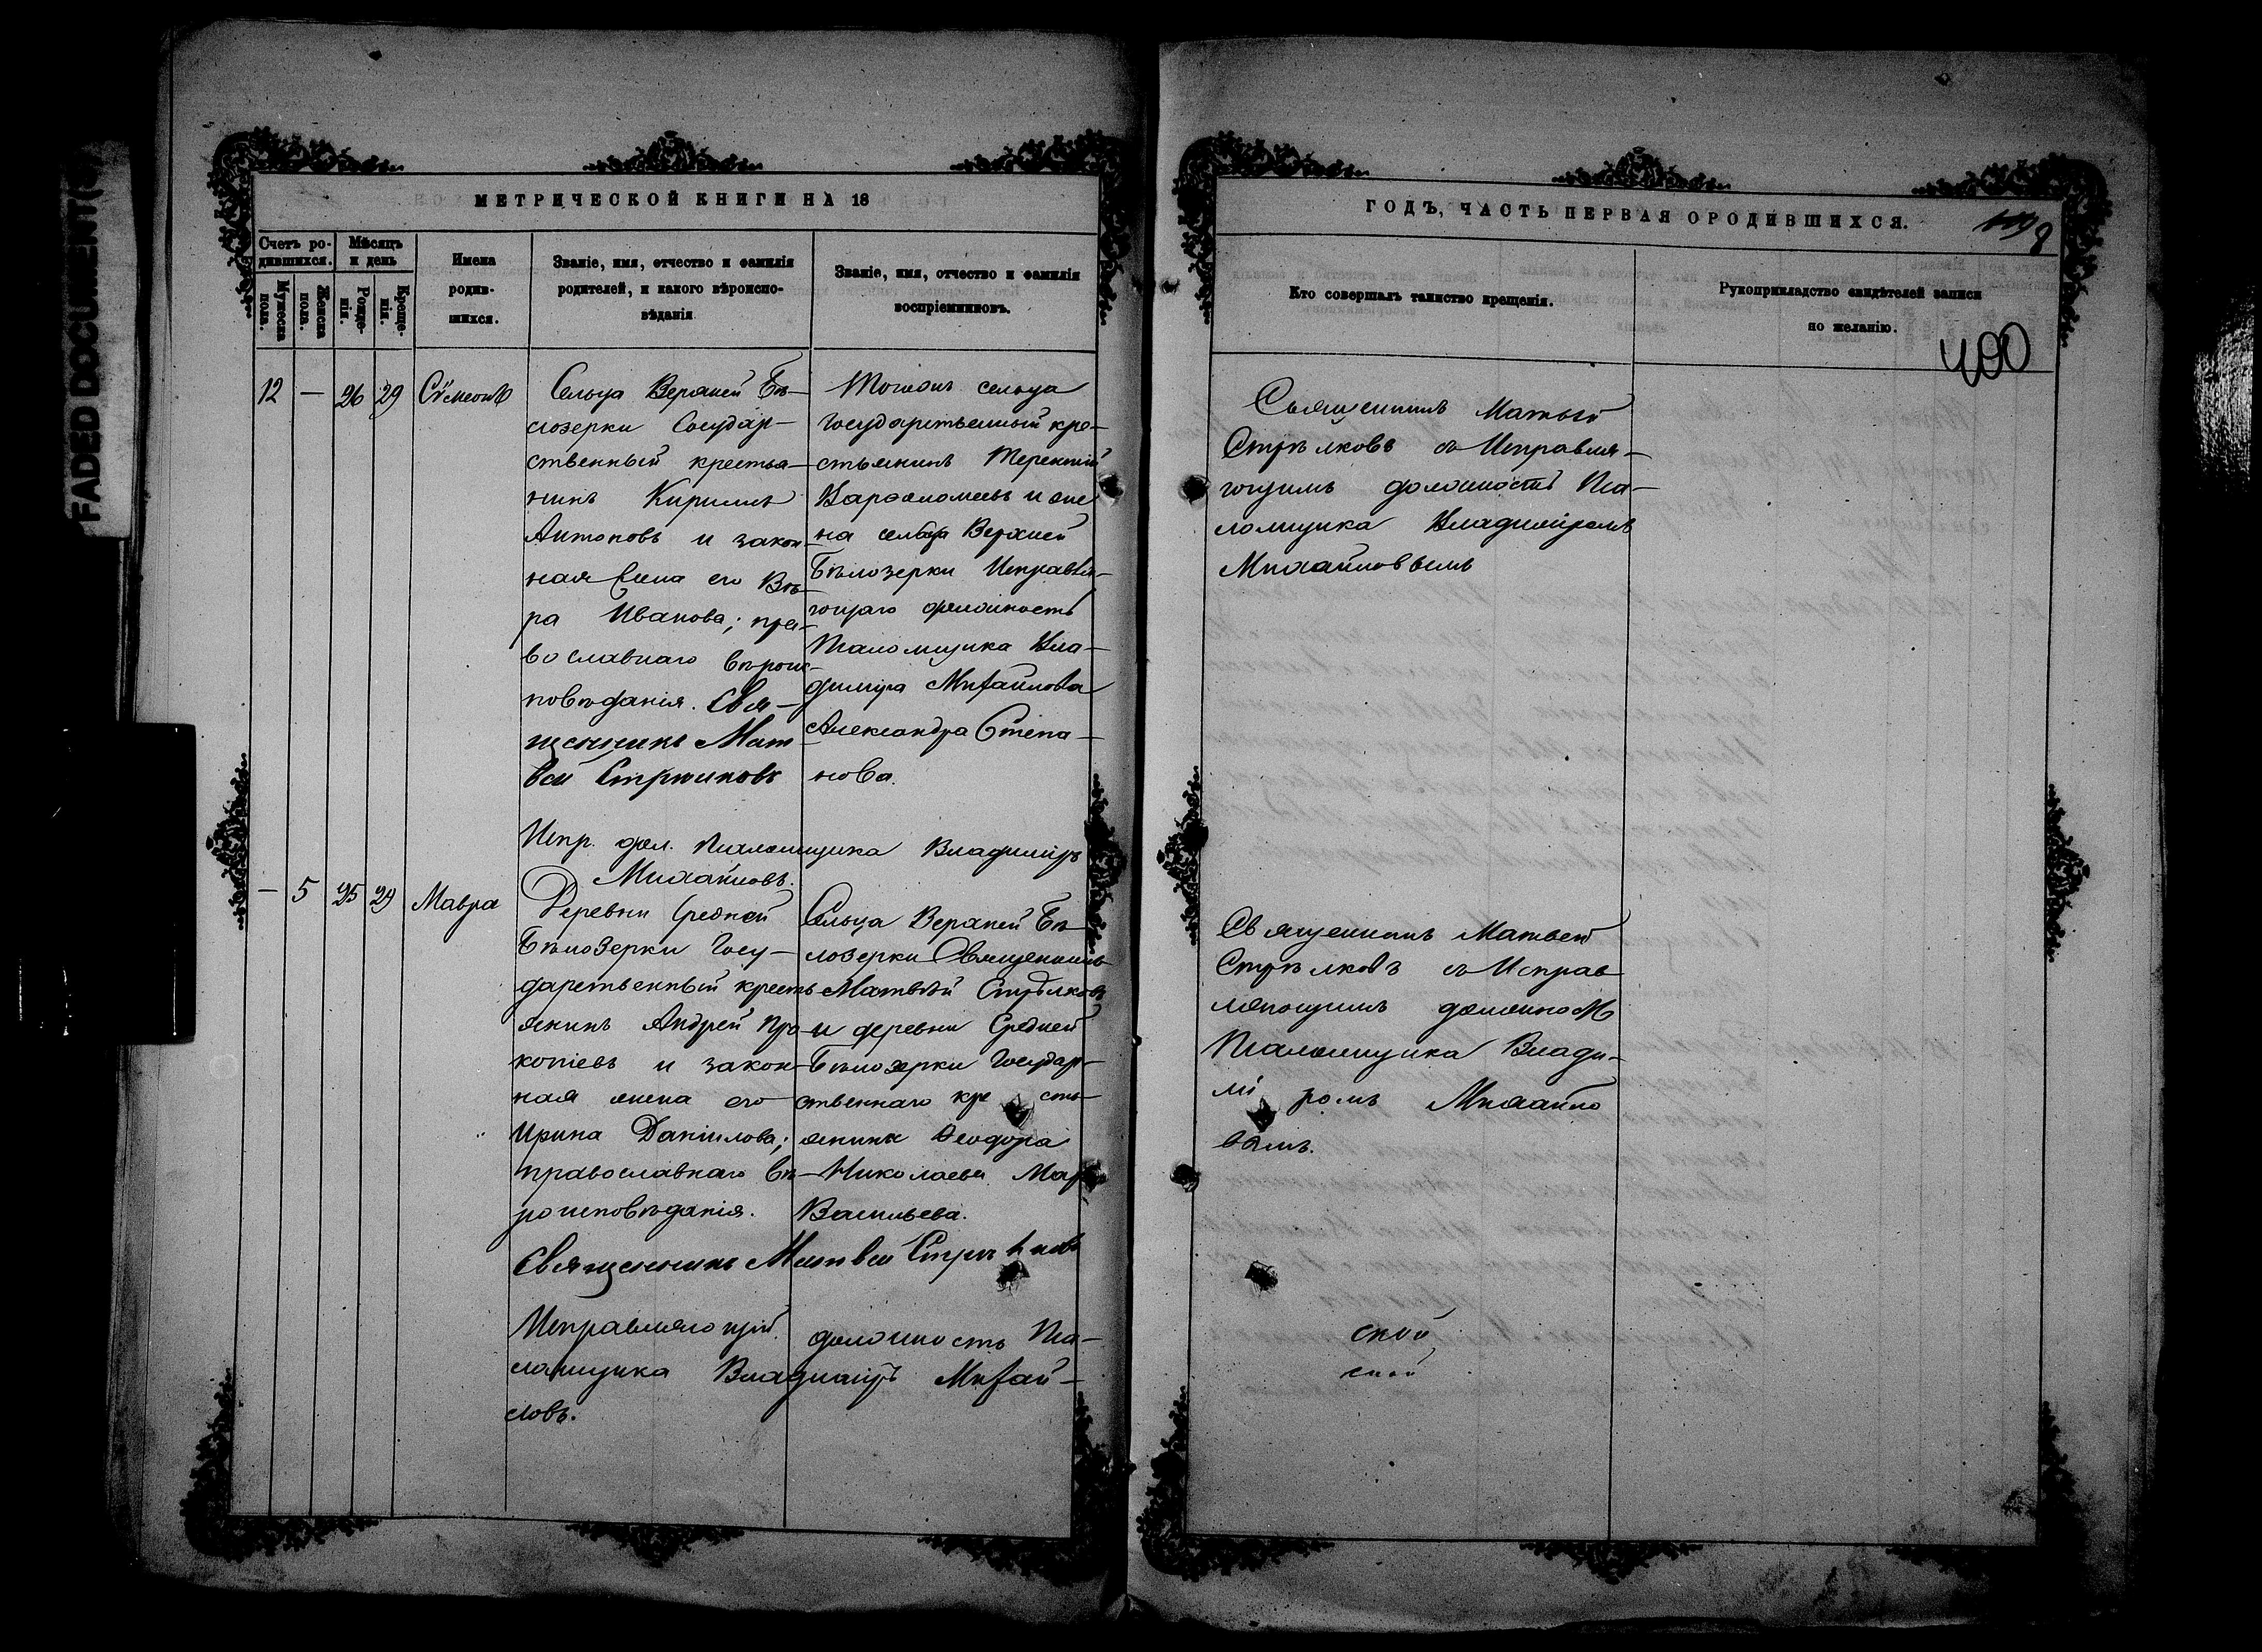 FADED DOCUMENT(S)
МЕТРИЧЕСКОЙ КНИГИ НА 18
Счетъ ро-
дившихся.
Мѣсяцъ
и день
Мужеска
пола.
Женска
пола.
Рожде-
нія.
Креще-
нія.
Имена
родив-
шихся.
Званіе, имя, отчество и фамилія
родителей, и какого вѣроиспо-
вѣданія
Званіе, имя, отчество и фамилія
воспріемниковъ.
12 — 26 29 Сѵмеонъ
Сельца Верхней Бѣ-
лозерки Государ-
ственный крестья-
нинъ Кириллъ
Антоновъ и закон-
ная жена его Вѣ-
ра Иванова; пра-
вославнаго вѣроис-
повѣданія. Свя-
щенникъ Мат-
вей Стрѣлковъ
Тогожъ сельца
Государственный кре-
стьянинъ Терентій
Варфоломеевъ и же-
на сельца Верхней
Бѣлозерки Исправля-
ющаго должность
Псаломщика Вла-
диміра Михайлова
Александра Степа-
нова.
Испр. дол. Псаломщика Владиміръ
Михайловъ.
— 5 25 29 Мавра
Деревни Средней
Бѣлозерки Госу-
дарственный кресть
янинъ Андрей Про
копіевъ и закон-
ная жена его
Ирина Даніилова;
православнаго вѣ-
роисповѣданія.
Сельца Верхней Бѣ-
лозерки Священникъ
Матвѣй Стрѣлковъ
и деревни Средней
Бѣлозерки Государ-
ственнаго кре сть-
янина Ѳеодора
Николаева
Васильева.
Священникъ Матвей Стрѣлковъ
Исправляющій должность Пса-
ломщика Владиміръ Михай-
ловъ.
ГОДЪ, ЧАСТЬ ПЕРВАЯ О РОДИВШИХСЯ.
8
Кто совершалъ таинство крещенія.
Рукоприкладство свидѣтелей записи
по желанію.
400
Священникъ Матвей
Стрѣлковъ съ Исправля-
ющимъ должность Пса-
ломщика Владиміромъ
Михайловымъ
Священникъ Матвей
Стрѣлковъ съ Исправ
ляющимъ должность
Псаломщика Влади-
мі ромъ Михайло
вымъ.
ской
ской